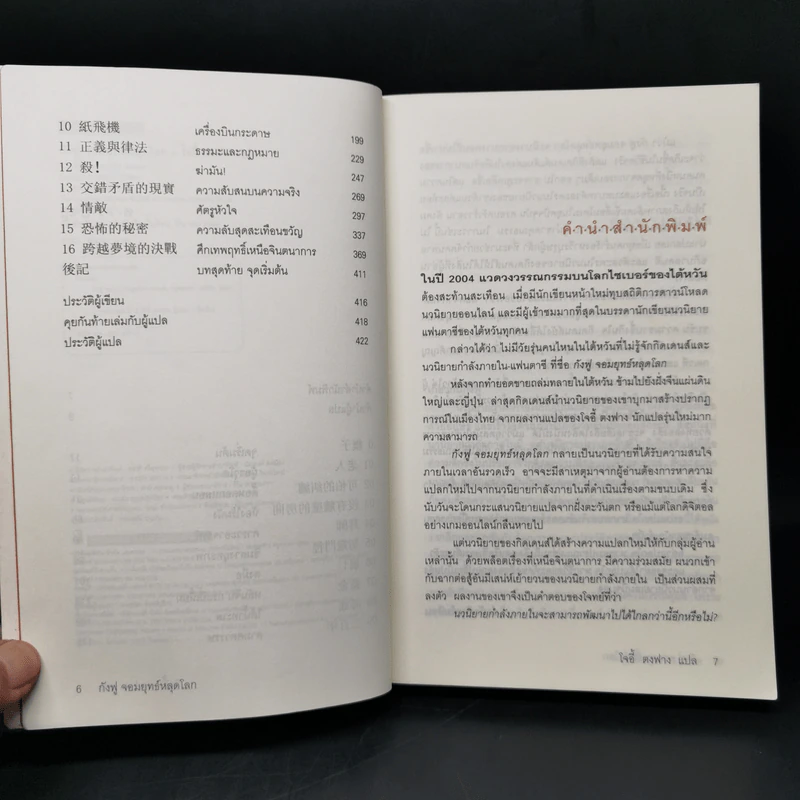 10 紙飛機 เครื่องบินกระดาษ 199
11 正義與律法 ธรรมะและกฎหมาย 229
12 殺! ฆ่ามัน! 247
13 交錯矛盾的現實 ความลับสนบนความจริง 269
14 情敵 ศัตรูหัวใจ 297
15 恐怖的秘密 ความลับสุดสะเทือนขวัญ 337
16 跨越夢境的決戰 ศึกเทพฤทธิ์เหนือจินตนาการ 369
後記 บทสุดท้าย จุดเริ่มต้น 411
ประวัติผู้เขียน 416
คุยกันท้ายเล่มกับผู้แปล 418
ประวัติผู้แปล 422
6 กังฟู จอมยุทธ์หลุดโลก
คำ·นำ·สำ·นัก·พิ·ม·พ์
ในปี 2004 แวดวงวรรณกรรมบนโลกไซเบอร์ของไต้หวัน
ต้องสะท้านสะเทือน เมื่อมีนักเขียนหน้าใหม่ทุบสถิติการดาวน์โหลด
นวนิยายออนไลน์ และมีผู้เข้าชมมากที่สุดในบรรดานักเขียนนวนิยาย
แฟนตาซีของไต้หวันทุกคน
กล่าวได้ว่า ไม่มีวัยรุ่นคนไหนในไต้หวันที่ไม่รู้จักกิดเดนส์และ
นวนิยายกำลังภายใน-แฟนตาซี ที่ชื่อ กังฟู จอมยุทธ์หลุดโลก
หลังจากทำยอดขายถล่มทลายในไต้หวัน ข้ามไปยังฝั่งจีนแผ่นดิน
ใหญ่และญี่ปุ่น ล่าสุดกิดเดนส์นำนวนิยายของเขาบุกมาสร้างปรากฏ
การณ์ในเมืองไทย จากผลงานแปลของโจอี้ ตงฟาง นักแปลรุ่นใหม่มาก
ความสามารถ
กังฟู จอมยุทธ์หลุดโลก กลายเป็นนวนิยายที่ได้รับความสนใจ
ภายในเวลาอันรวดเร็ว อาจจะมีสาเหตุมาจากผู้อ่านต้องการหาความ
แปลกใหม่ไปจากนวนิยายกำลังภายในที่ดำเนินเรื่องตามขนบเดิม ซึ่ง
นับวันจะโดนกระแสนวนิยายจากฝั่งตะวันตก หรือแม้แต่โลกดิจิตอล
อย่างเกมออนไลน์กลืนหายไป
แต่นวนิยายของกิดเดนส์ได้สร้างความแปลกใหม่ให้กับกลุ่มผู้อ่าน
เหล่านั้น ด้วยพล็อตเรื่องที่เหนือจินตนาการ มีความร่วมสมัย ผนวกเข้า
กับฉากต่อสู้อันมีเสน่ห์เย้ายวนของนวนิยายกำลังภายใน เป็นส่วนผสมที่
ลงตัว ผลงานของเขาจึงเป็นคำตอบของโจทย์ที่ว่า
นวนิยายกำลังภายในจะสามารถพัฒนาไปได้ไกลกว่านี้อีกหรือไม่?
โจอี้ ตงฟาง แปล 7